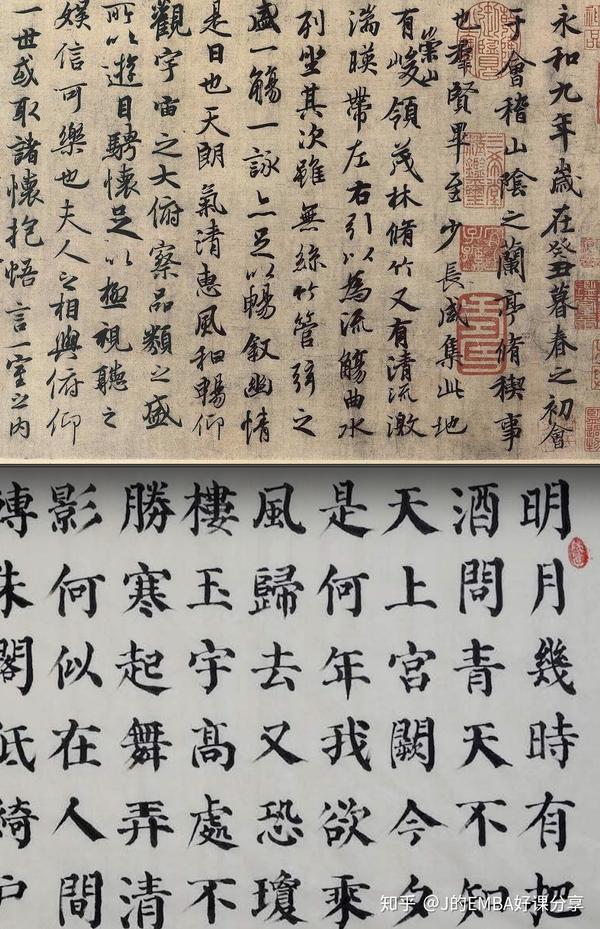 永和九年歲在癸丑暮春之初會
于會稽山陰之蘭亭脩稧事
也羣賢畢至少長咸集此地
有崇山峻領茂林脩竹又有清流激
湍暎帶左右引以為流觴曲水
列坐其次雖無絲竹管弦之
盛一觴一詠亦足以暢敘幽情
是日也天朗氣清惠風和暢仰
觀宇宙之大俯察品類之盛
所以遊目騁懷足以極視聽之
娛信可樂也夫人之相與俯仰
一世或取諸懷抱悟言一室之內
明月幾時有把
酒問青天不知
天上宮闕今夕
是何年我欲乘
風歸去又恐瓊
樓玉宇高處不
勝寒起舞弄清
影何似在人間
轉朱閣低綺戶
知乎 @J的EMBA好课分享